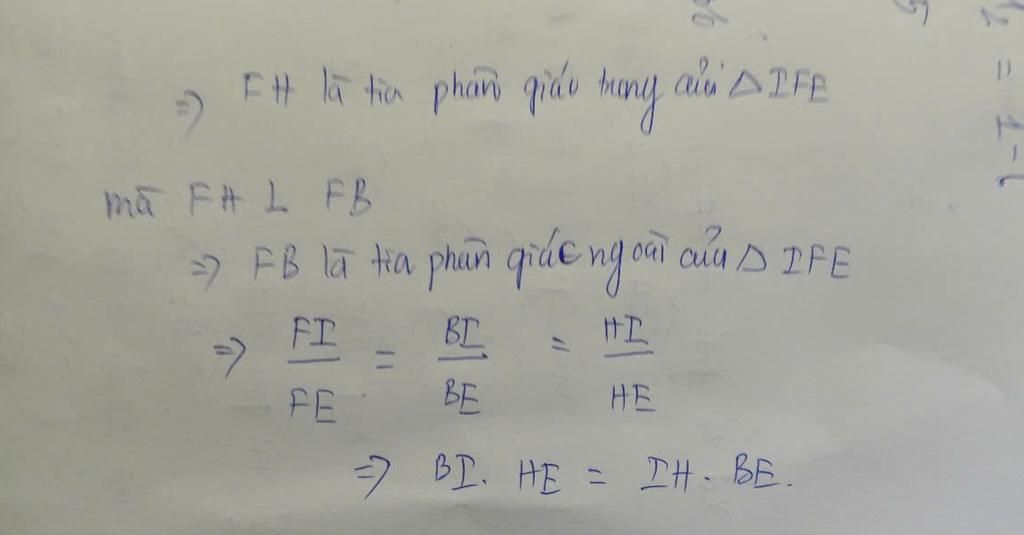 => FH là tia phân giác trong của Δ IFE
mà FH ⊥ FB
=> FB là tia phân giác ngoài của Δ IFE
=> FI/FE = BI/BE = HI/HE
=> BI. HE = IH. BE.